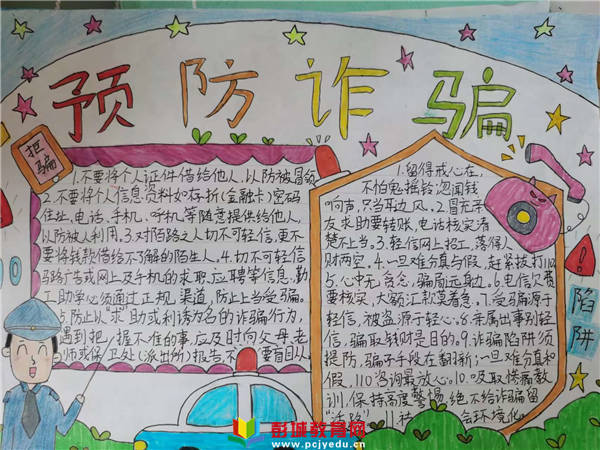 预防诈骗
拒骗
1.不要将个人证件借给他人,以防被冒领
2.不要将个人信息资料如存折(金融卡)密码
住址、电话、手机、呼机等随意提供给他人,
以防被人利用。3.对陌路之人切不可轻信,更不
要将钱款借给不了解的陌生人。4.切不可轻信
马路广告或网上及手机的求取应聘等信息,勤
工助学必须通过正规渠道,防止上当受骗。
5.防止以“求”助或利诱为名的诈骗行为,
遇到把握不准的事,应及时向父母、老
师或保卫处(派出所)报告,不要盲目从
1.留得戒心在,
不怕鬼摇铃,忽闻钱
响声,只当耳边风。2.冒充亲
友求助要转账,电话核实清
楚不上当。3.轻信网上招工,落得人
财两空。4.一旦难分真与假,赶紧拨打110
5.心中无贪念,骗局远身边。6.电信欠费
要核实,大额汇款莫着急。7.受骗源于
轻信,被盗源于轻心。8.亲属出事别轻
信,骗取钱财是目的。9.诈骗陷阱须
提防,骗子手段在翻新;一旦难分真和
假,110咨询最放心。10.吸取惨痛教
训,保持高度警惕,绝不给诈骗留
“活路”11.社 会环境化
陷
阱
彭城教育网
www.pcjyedu.cn